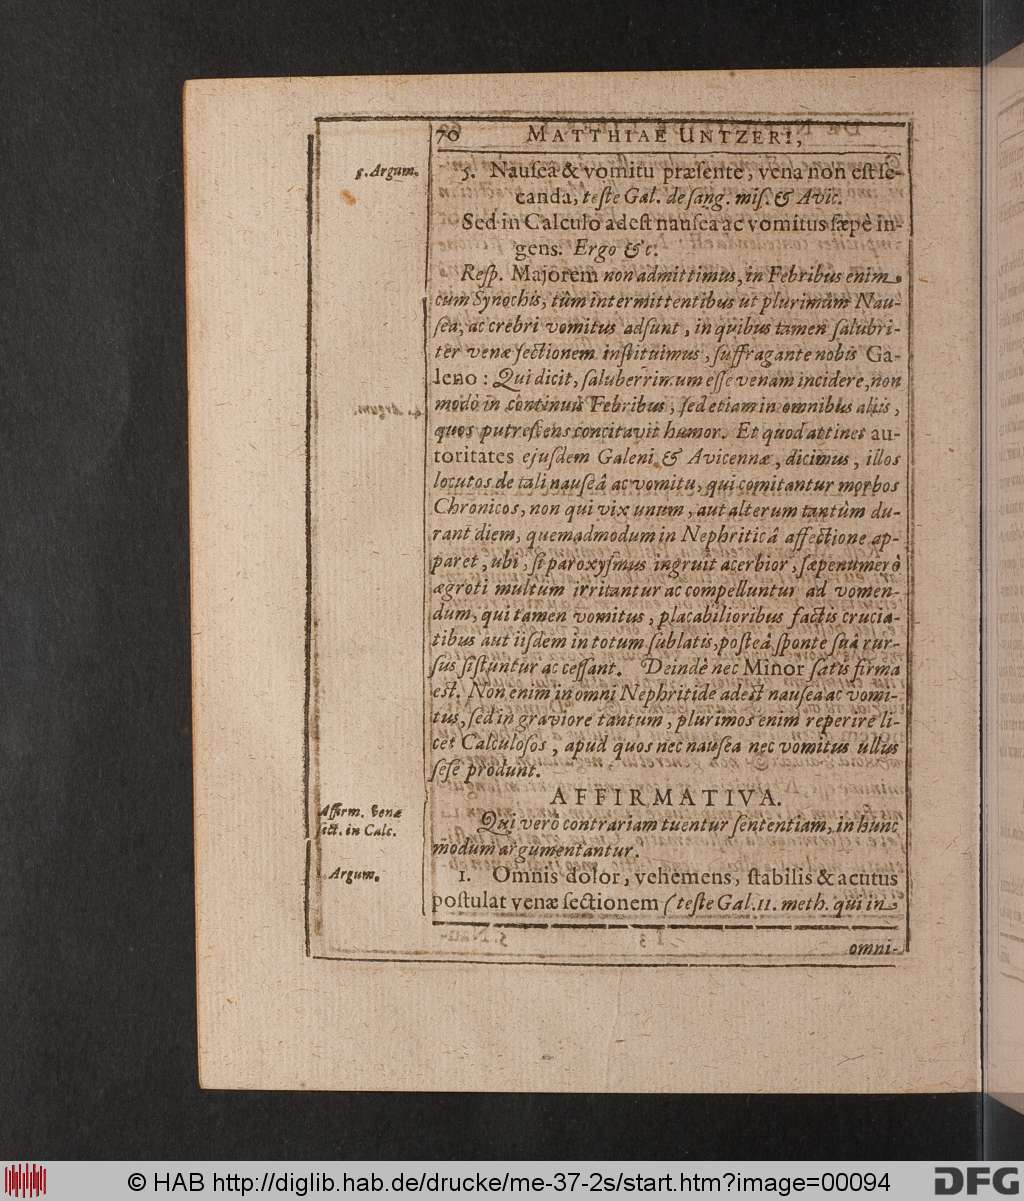 70 MATTHIAE UNTZERI,
5. Argum.
5. Nauſeâ & vomitu præſente, vena non eſt ſe-
canda, teſte Gal. de ſang. miſ. & Avic.
Sed in Calculo adeſt nauſea ac vomitus ſæpè in-
gens. Ergo &c.
Reſp. Majorem non admittimus, in Febribus enim
cum Synochis, tùm intermittentibus ut plurimùm Nau-
ſea, ac crebri vomitus adſunt, in quibus tamen ſalubri-
ter venæ ſectionem inſtituimus, ſuffragante nobis Ga-
leno: Qui dicit, ſaluberrimum eſſe venam incidere, non
modò in continuis Febribus, ſed etiam in omnibus aliis,
quos putreſcens concitavit humor. Et quod attinet au-
toritates ejuſdem Galeni & Avicennæ, dicimus, illos
locutos de tali nauſeâ ac vomitu, qui comitantur morbos
Chronicos, non qui vix unum, aut alterum tantùm du-
rant diem, quemadmodum in Nephriticâ affectione ap-
paret, ubi, ſi paroxyſmus ingruit acerbior, ſæpenumerò
ægroti multum irritantur ac compelluntur ad vomen-
dum, qui tamen vomitus, placabilioribus factis crucia-
tibus aut iiſdem in totum ſublatis, poſteà ſponte ſuâ rur-
ſus ſiſtuntur ac ceſſant. Deindè nec Minor ſatis firma
est. Non enim in omni Nephritide adest nauſea ac vomi-
tus, ſed in graviore tantum, plurimos enim reperire li-
cet Calculoſos, apud quos nec nauſea nec vomitus ullus
ſeſe produnt.
AFFIRMATIVA.
Affirm. venæ
ſect. in Calc.
Qui verò contrariam tuentur ſententiam, in hunc
modum argumentantur.
1. Argum.
1. Omnis dolor, vehemens, ſtabilis & acutus
poſtulat venæ ſectionem (teſte Gal. 11. meth. qui in
omni-
© HAB http://diglib.hab.de/drucke/me-37-2s/start.htm?image=00094
DFG